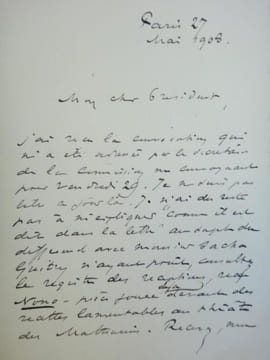 Paris 27
Mai 1908.
Mon cher Président,
j'ai reçu la convocation qui
m'a été adressée par le secrétaire
de la Commission me convoquant
pour vendredi 29. Je ne serai pas
à
. Je n'ai du reste
pas à m'expliquer comme il est
dit dans la lettre au sujet du
différend avec monsieur Sacha
Guitry n'ayant pour
le registre des
Nono - pièce jouée devant des
recettes lamentables au théâtre
des Mathurins.